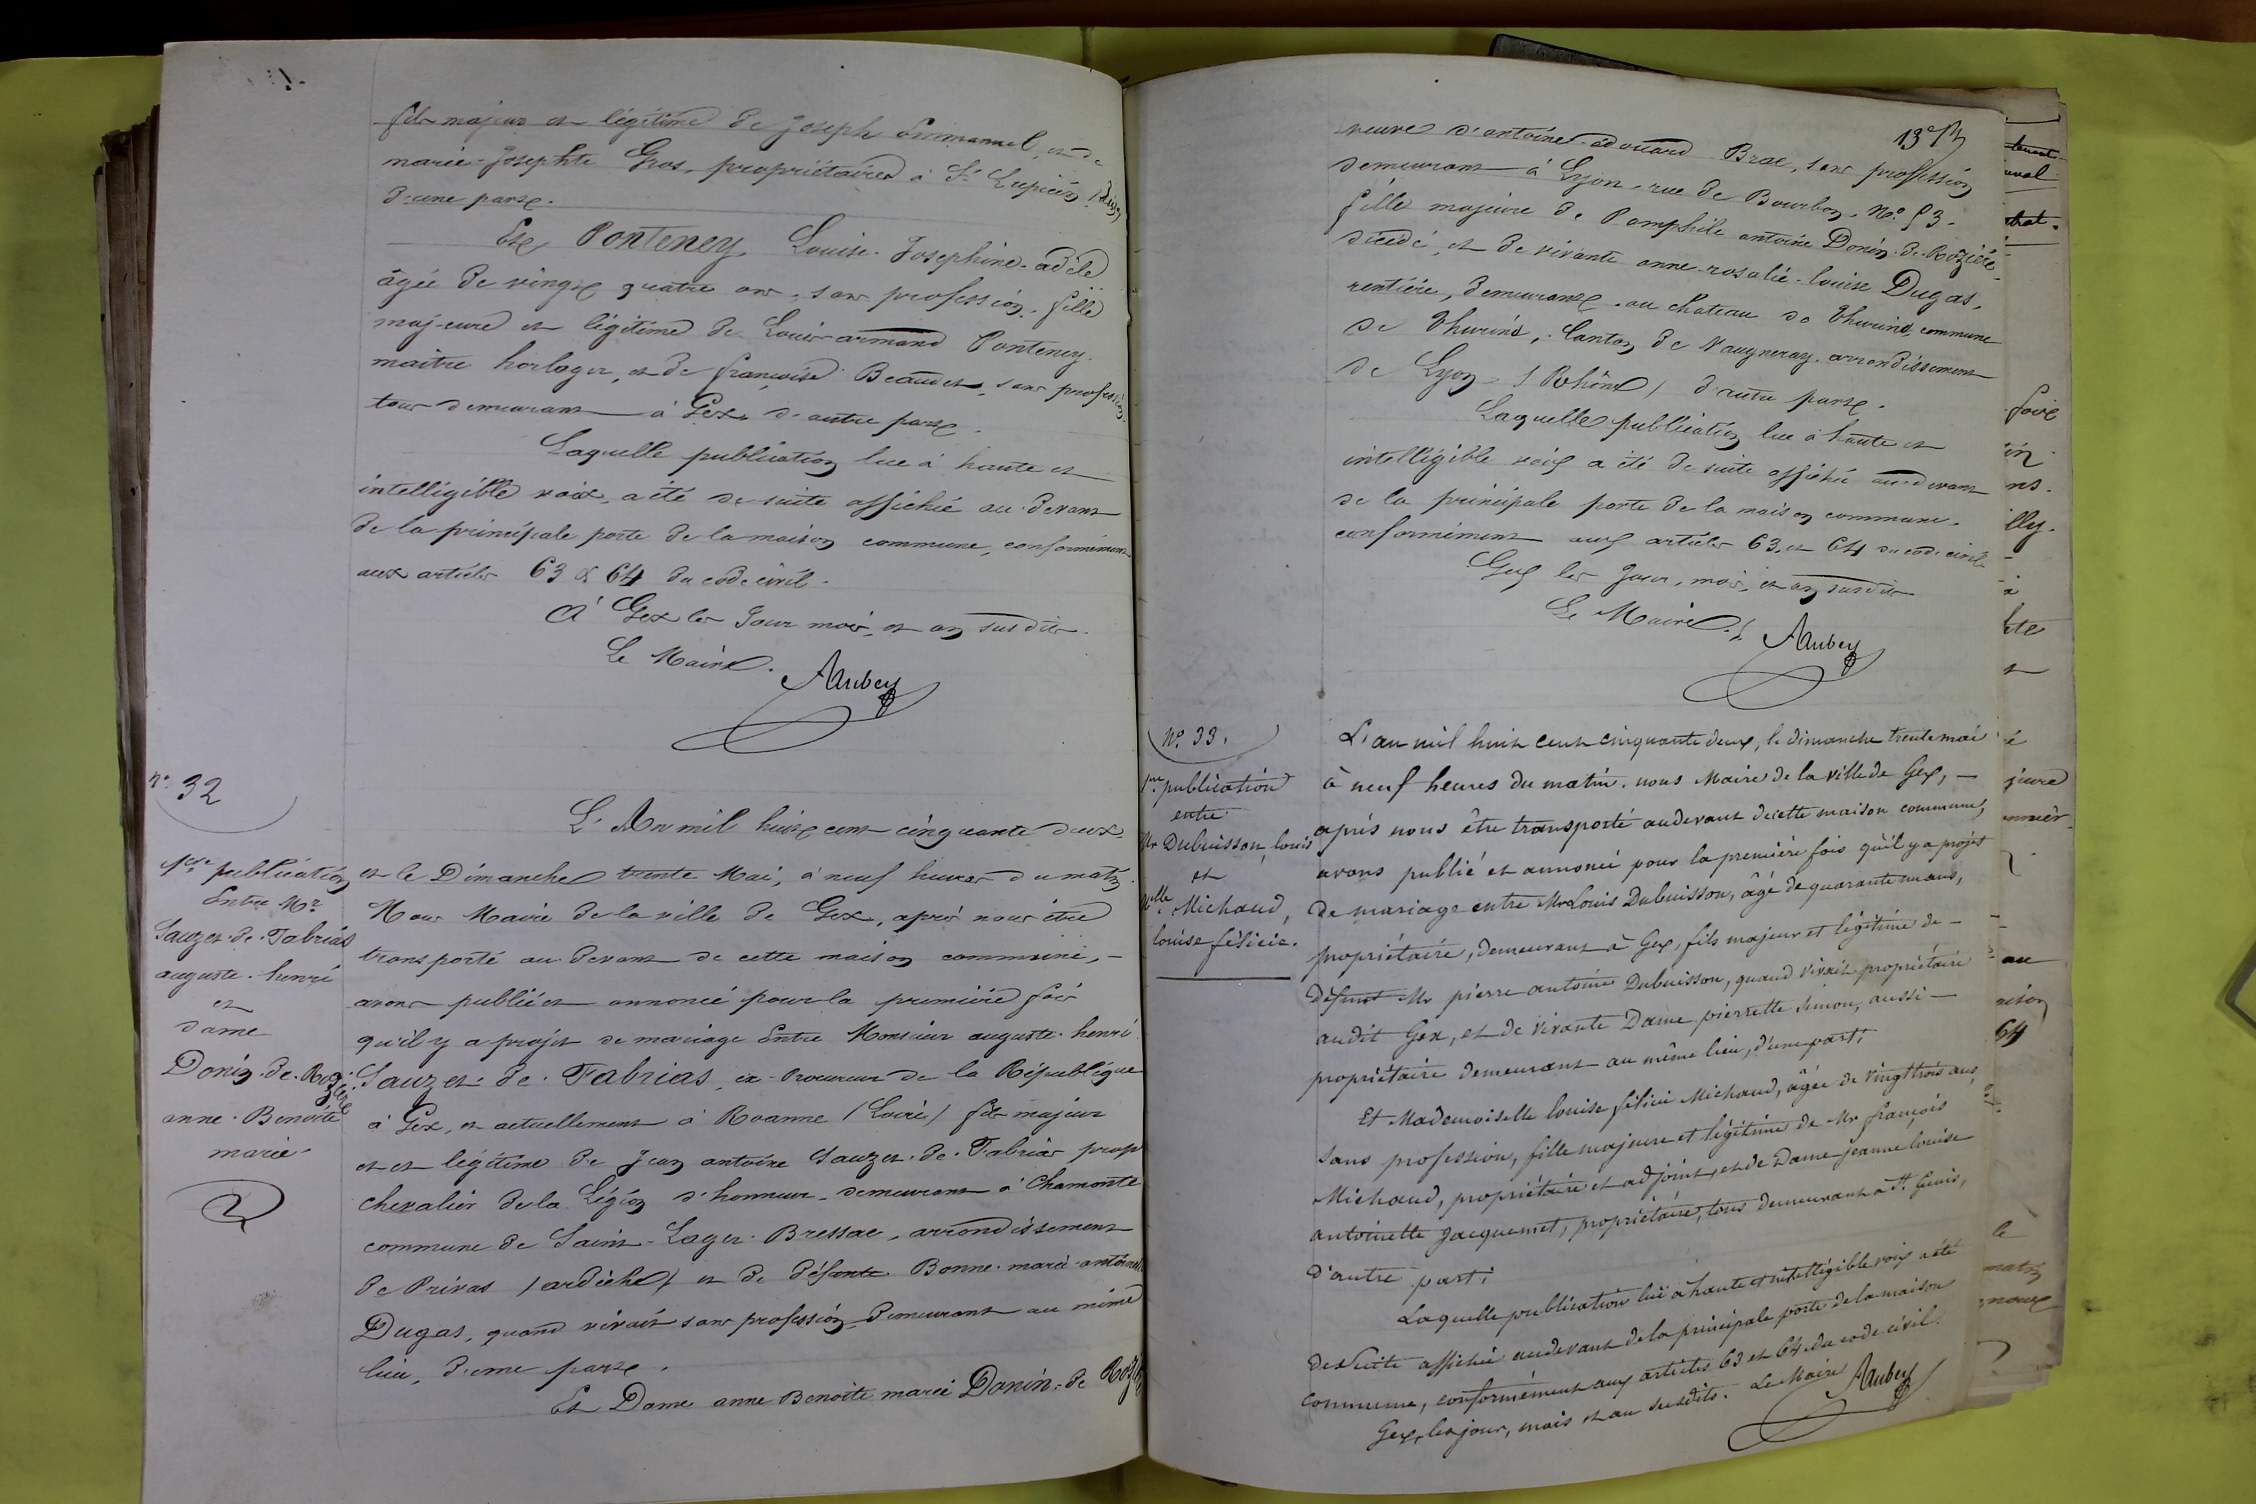 fils majeur et légitime de Joseph Emmanuel, et de
marie-Josephte Gros, propriétaires à St Lupicin (Jura)
d'une part.
Et Ponteney, Louise-Josephine-adèle
âgée de vingt quatre ans, sans profession, fille
majeure et légitime de Louis-armand Ponteney
maître horloger, et de françoise Beaudet, sans profession
tous demeurant à Gex, d'autre part.
Laquelle publication lue à haute et
intelligible voix, a été de suite affichée au devant
de la principale porte de la maison commune, conformément
aux articles 63 & 64 du code civil.
à Gex les Jour mois, et an susdits.
Le Maire.
AAubey
no. 32
1ère publication
Entre Mr
Sauzet-de-Fabrias
auguste-henri
et
dame
Donin-de-Rozière
anne-Benoite
marie.
L'An mil huit cent cinquante deux
et le Dimanche trente Mai, à neuf heures du matin.
Nous Maire de la ville de Gex, après nous être
transporté au devant de cette maison commune,-
avons publié et annoncé pour la première fois
qu'il y a projet de mariage Entre Monsieur auguste-henri
Sauzet-de-Fabrias, ex-Procureur de la République
à Gex, et actuellement à Roanne (Loire) fils majeur
et et légitime de Jean antoine Sauzet-de-Fabrias propr
chevalier de la Légion d'honneur, demeurant à Chamonte
commune de Saint-Lager-Bressac, arrondissement
de Privas (ardèche) et de défunte Bonne-marie-antoinette
Dugas, quand vivait sans profession, Demeurant au même
lieu, d'une part.
Et Dame anne Benoite marie Donin-de Rozière
13e
veuve d'antoine-édouard Brac, sans profession
demeurant à Lyon, rue de Bourbon, No. 53.
fille majeure de Pamphile antoine Donin-de-Rozière
décédé, et de vivante anne-rosalie-louise Dugas,
rentière, demeurant au chateau de Thurins, commune
de Thurins, Canton de Vaugneray, arrondissement
de Lyon (Rhône) d'autre part.
Laquelle publication lue à haute et
intelligible voix a été de suite affiché au devant
de la principale porte de la maison commune.
conformément aux articles 63 et 64 du code civil.
Gex les Jour, mois, et an susdits
Le Maire.
AAubey
No. 33.
1re publication
entre
Mr Dubuisson, louis
et
Melle Michaud,
louise félicie.
L'an mil huit cent cinquante deux, le dimanche trente mai
à neuf heures du matin, nous Maire de la ville de Gex, -
après nous être transporté audevant decette maison commune,
avons publié et annoncé pour la première fois qu'il y a projet
de mariage entre Mr Louis Dubuisson, âgé de quarante un ans,
propriétaire, demeurant à Gex, fils majeur et légitime de -
défunt Mr pierre antoine Dubuisson, quand vivait propriétaire
audit Gex, et de vivante Dame pierrette Simon, aussi -
propriétaire demeurant au même lieu, d'une part;
Et Mademoiselle louise félicie Michaud, âgée de vingt trois ans,
sans profession, fille majeure et légitime de Mr françois
Michaud, propriétaire et adjoint, et de Dame jeanne louise
antoinette Jacquemet, propriétaire, tous demeurant à St Genis,
d'autre part;
Laquelle publication lue à haute et intelligible voix a été
de Suite affichée audevant de la principale porte de la maison
commune, conformément aux articles 63 et 64 du code civil.
Gex, les jour, mois et an susdits. Le Maire
AAubey